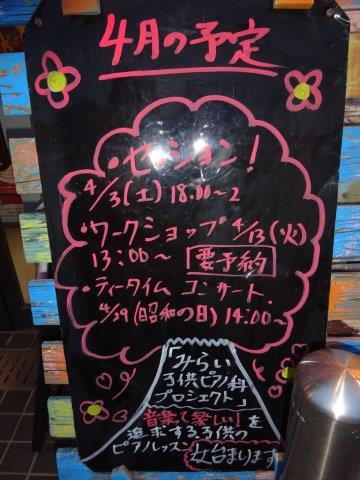 4月の予定
・セッション!
4/3(土) 18:00〜
・ワークショップ 4/13(火)
13:00〜 要予約
・ティータイム コンサート
4/29(昭和の日) 14:00〜
「みらい
子供ピアノ科
プロジェクト」
音楽て楽しい」を
追求する、子供の
ピアノレッスン 始まります